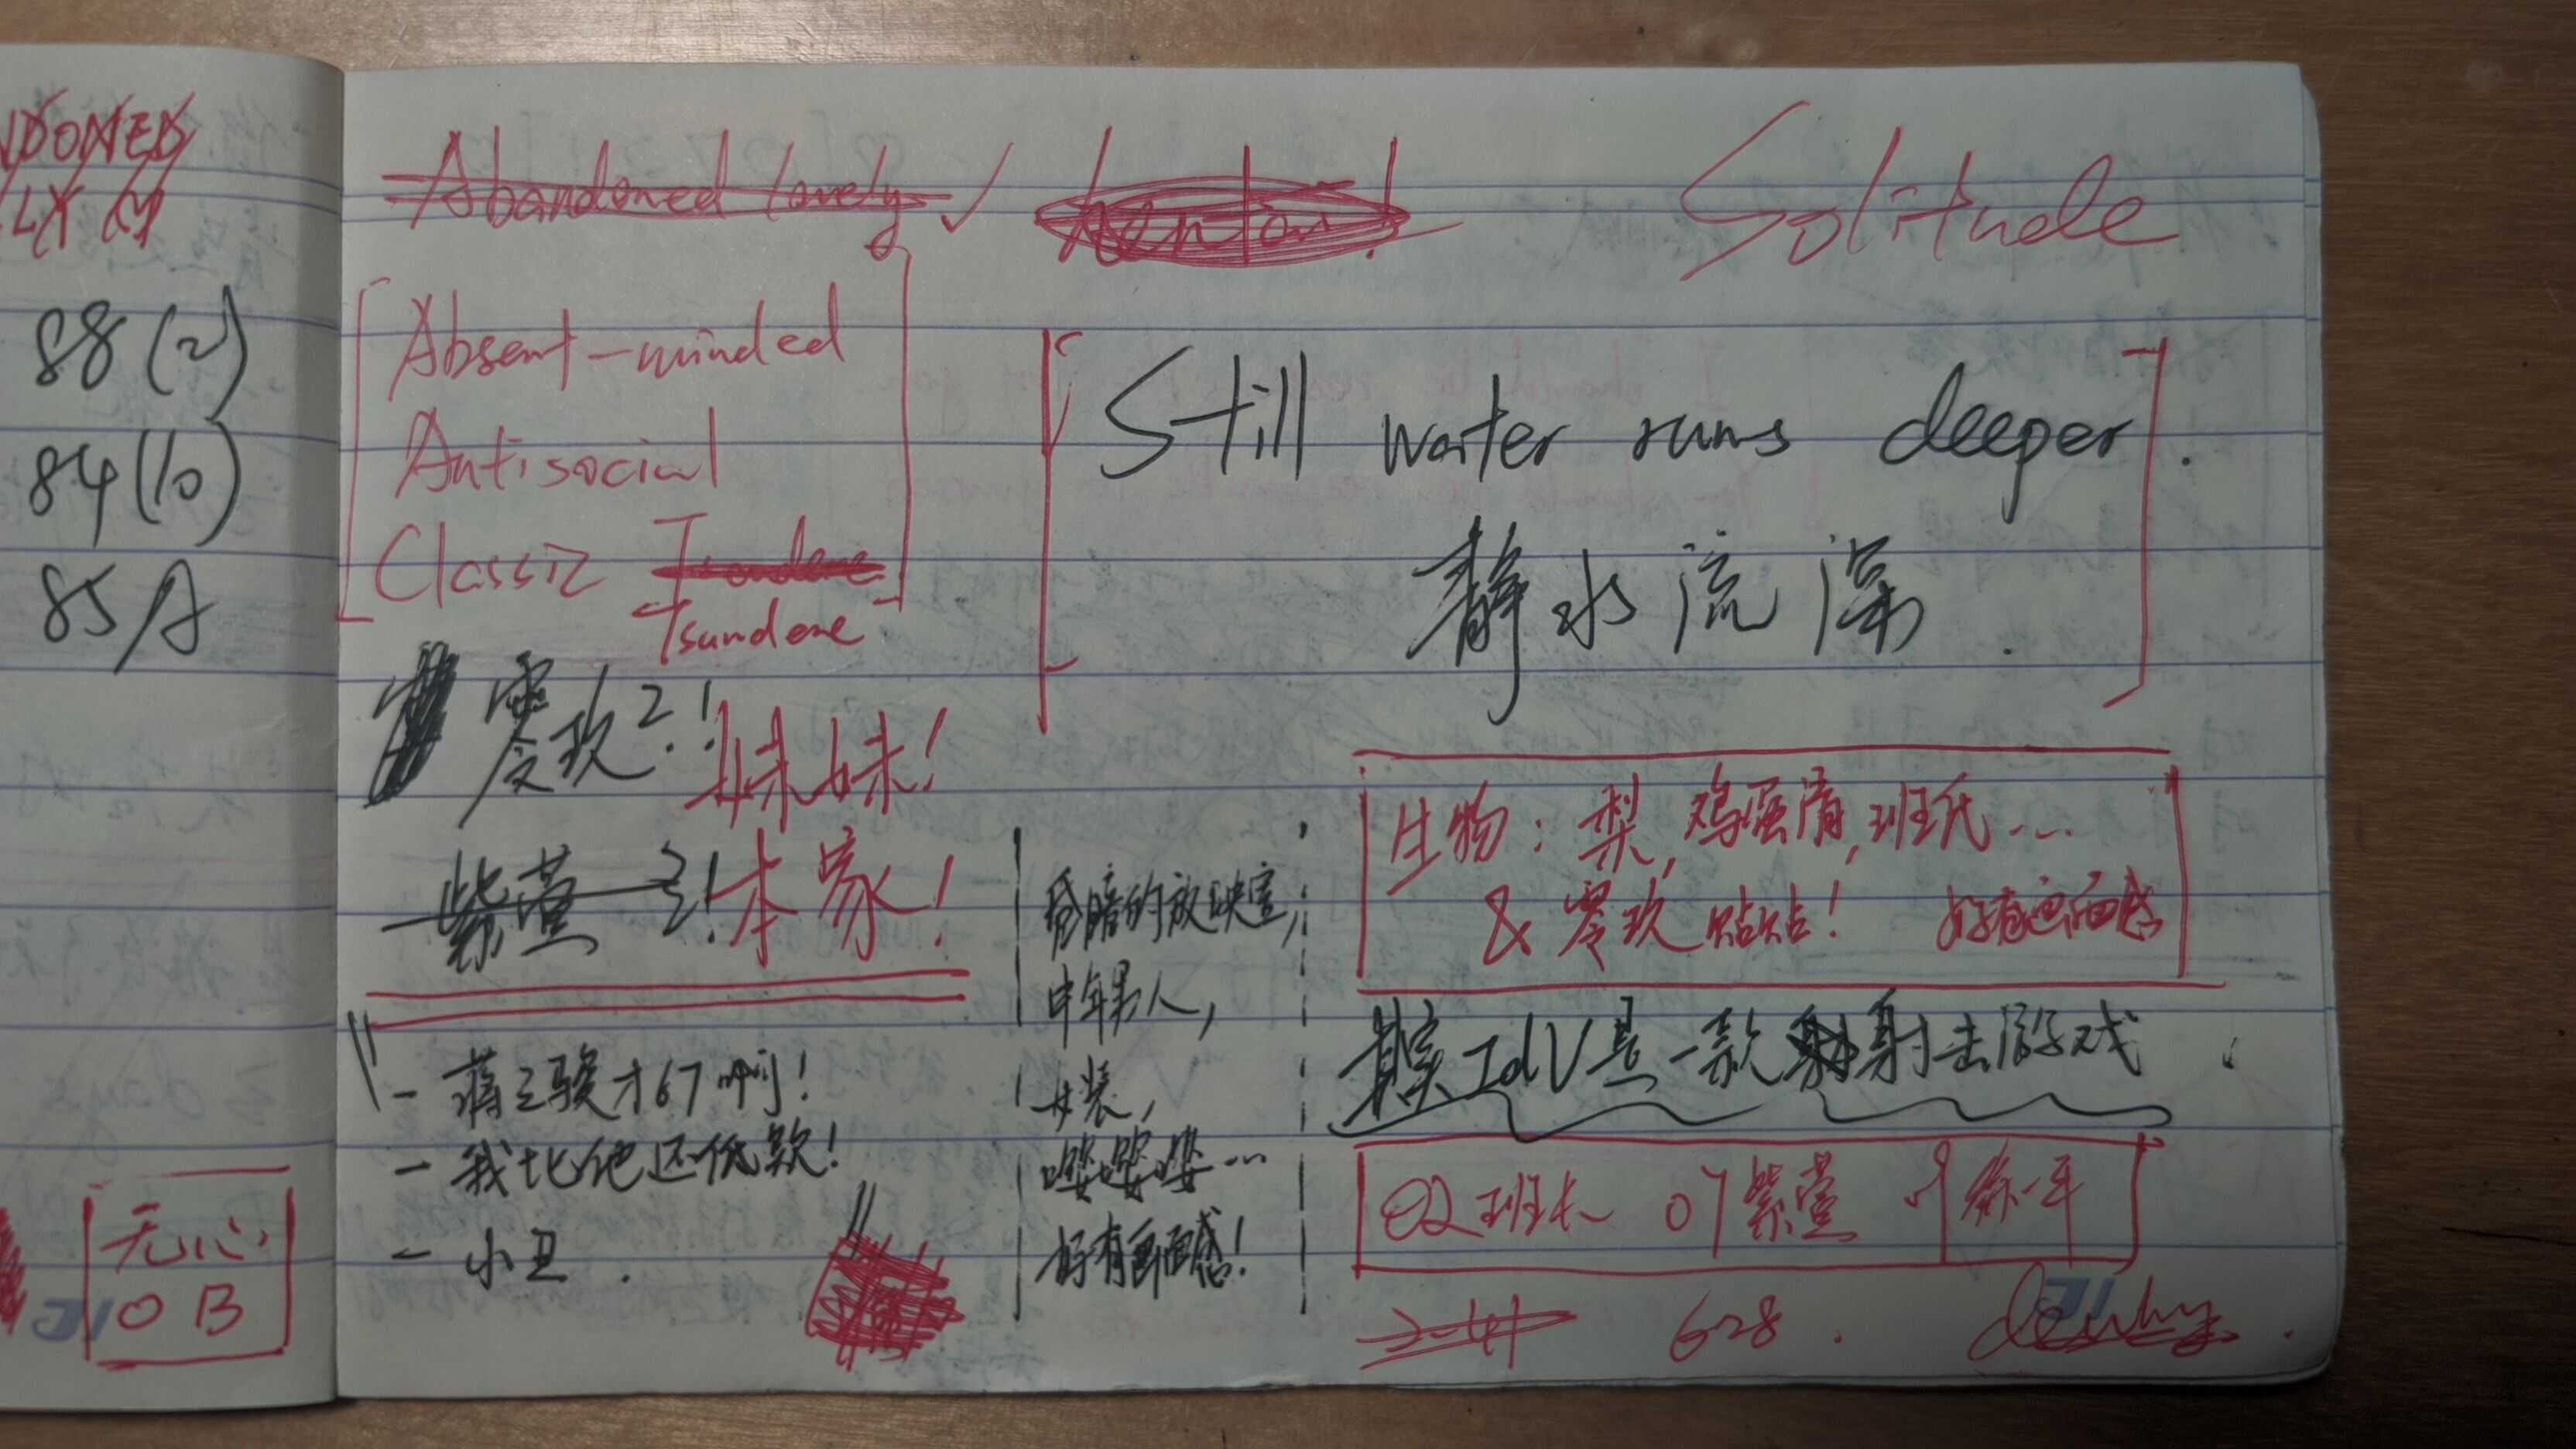 NDONED
LY
88 (2)
84 (10)
85 A
无心
OB
Abandoned lovely ✓
hentai!
Solitude
Absent-minded
Antisocial
Classic
Tsundere
Still water runs deeper.
静水流深.
零玖?! 妹妹!
紫萱 ?! 本家!
- 蒋三骏才67啊!
- 我比他还低欸!
- 小丑.
昏暗的放映室,
中年男人,
女装,
嘤嘤嘤…
好有画面感!
生物: 梨, 鸡蛋清, 班氏…
& 零玖贴贴! 好有画面感
其实IdV是一款射击游戏.
02班长 07紫萱 09徐一平
628.